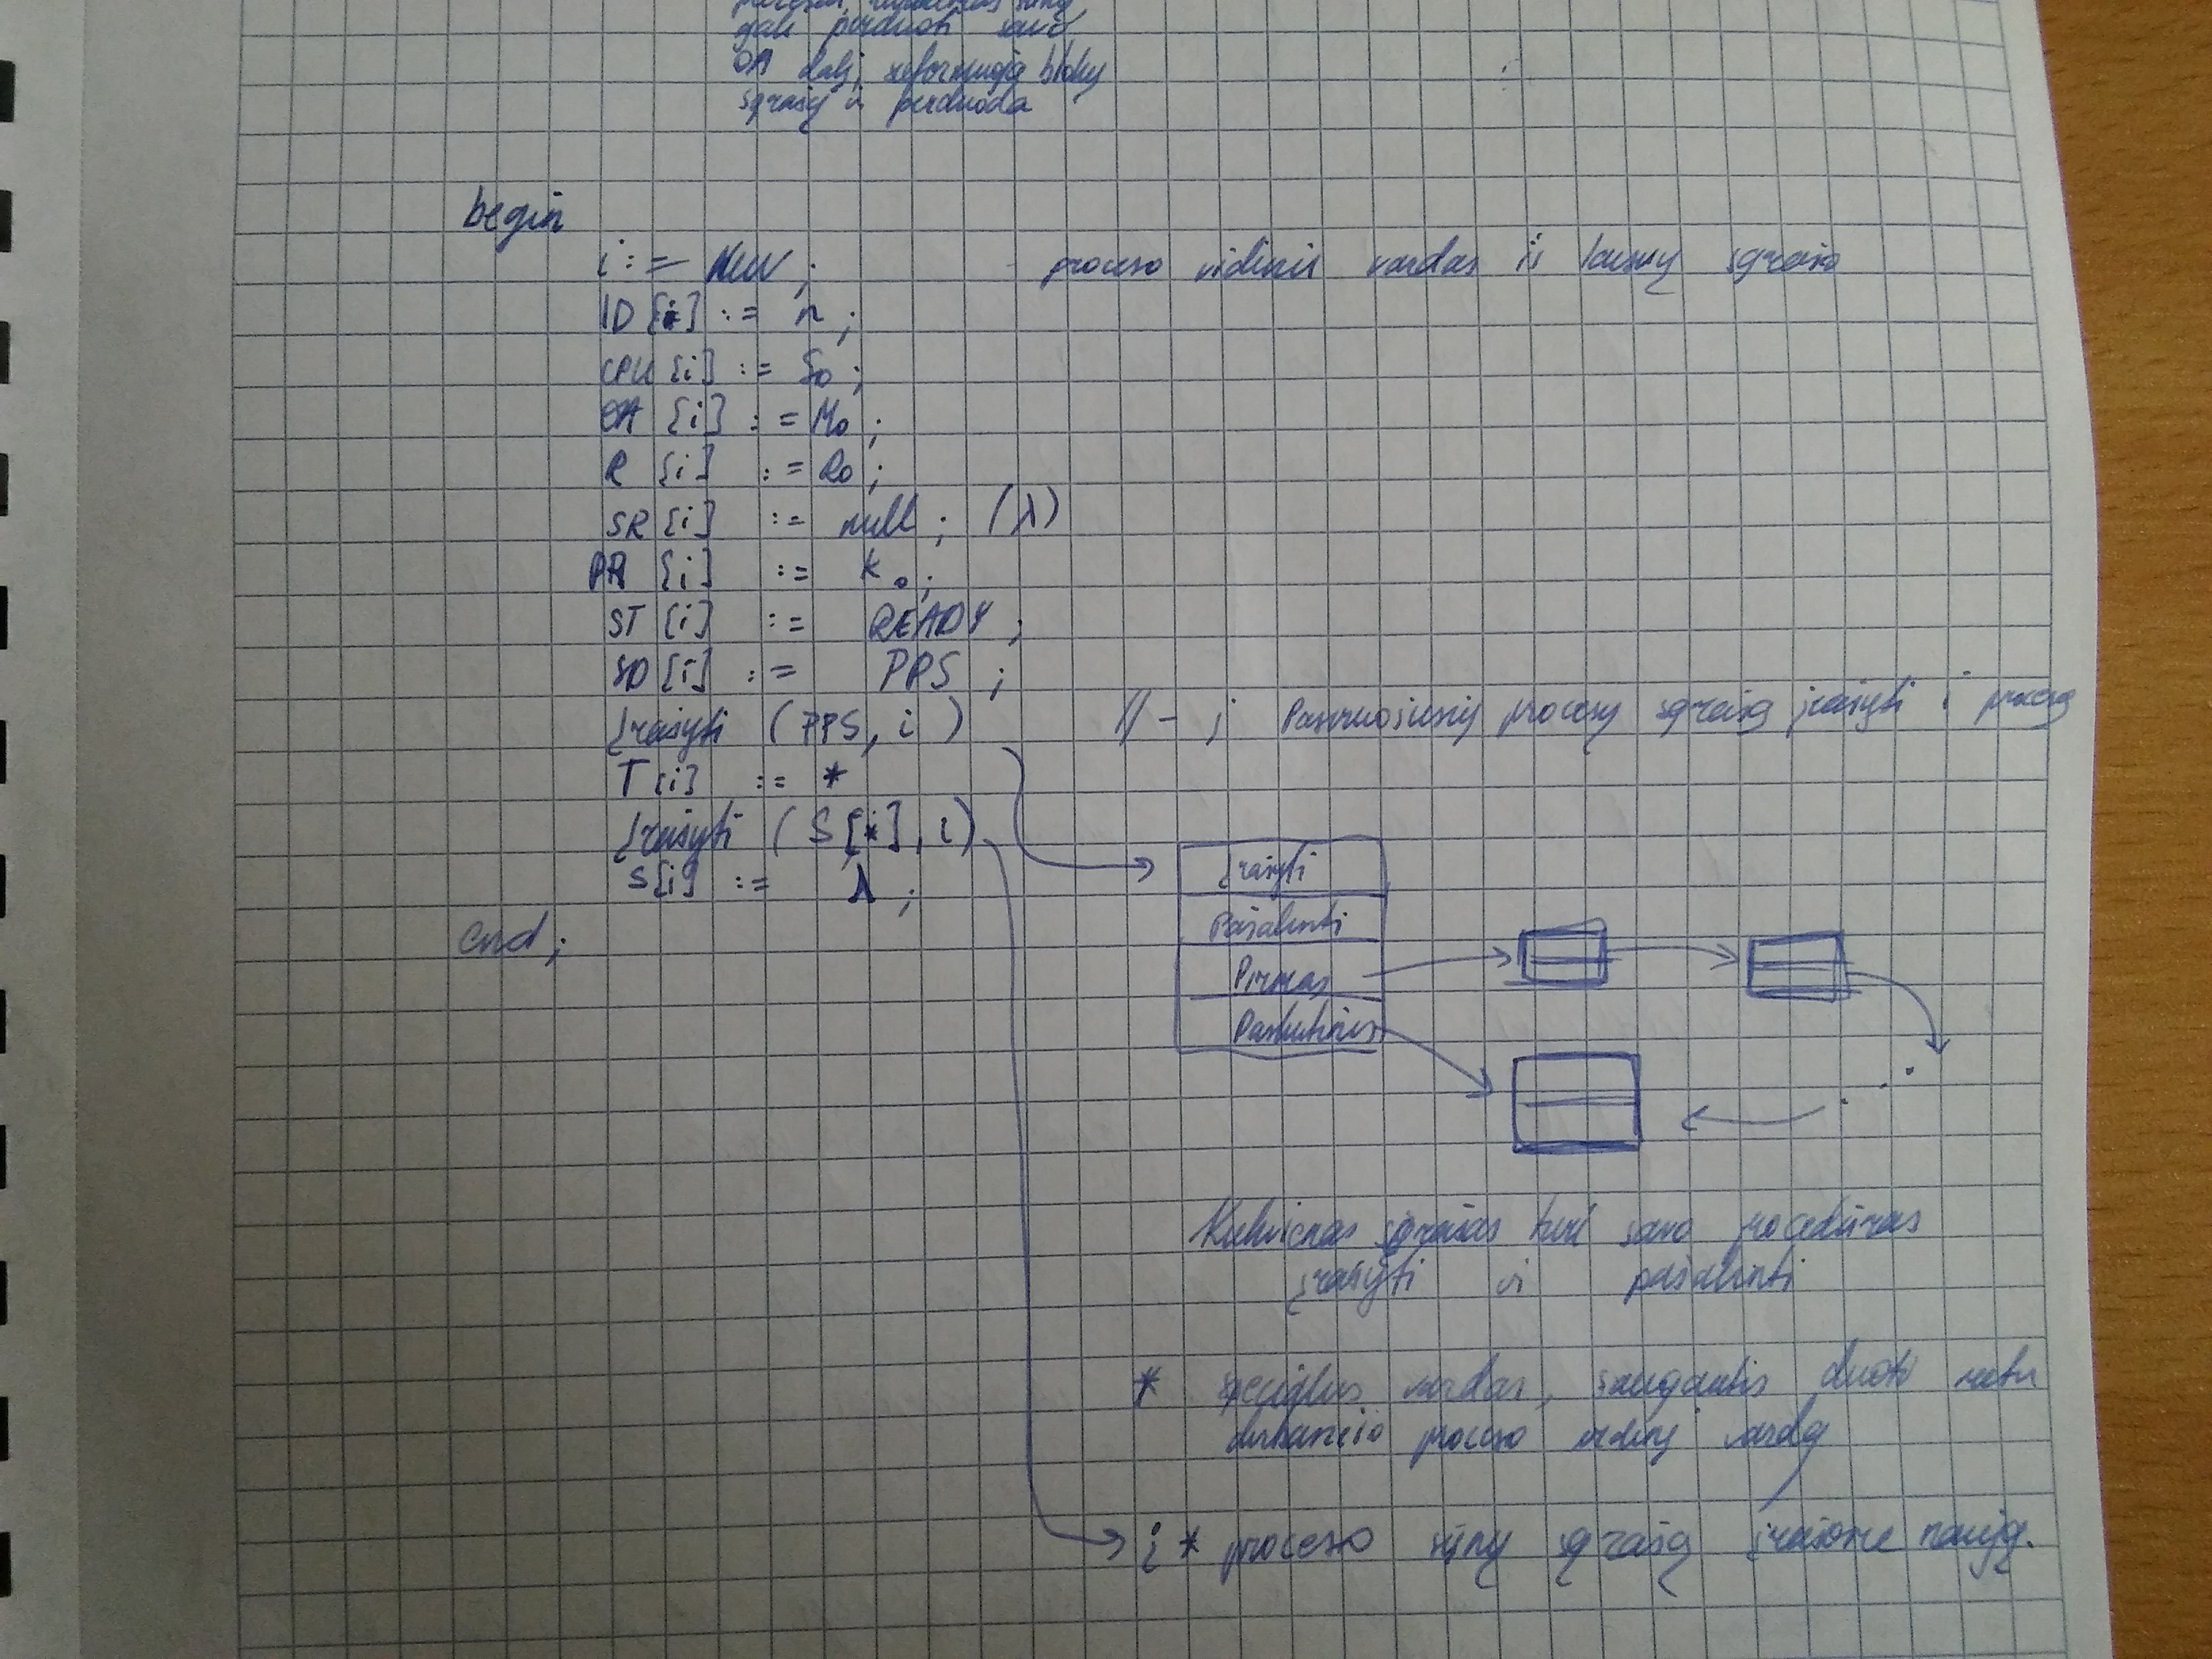 gali perduoti savo
OA dalį, suformuoja blokų
sąrašą ir perduoda
begin
i := New ; proceso vidinis vardas iš laisvų sąrašo
ID [i] := n ;
CPU [i] := S0 ;
OA [i] := M0 ;
R [i] := R0 ;
SR [i] := null ; (λ)
PR [i] := K0 ;
ST [i] := READY ;
SD [i] := PPS ;
Įrašyti (PPS, i) // - į Pasiruošusių procesų sąrašą įrašyti i procesą
T [i] := *
Įrašyti (S[*], i)
S[i] := Λ ;
end ;
Įrašyti
Pašalinti
Pirmas
Paskutinis
Kiekvienas sąrašas turi savo procedūras
įrašyti ir pašalinti
* specialus vardas, saugantis duotu metu
dirbančio proceso vidinį vardą
į * proceso sūnų sąrašą įrašome naują.